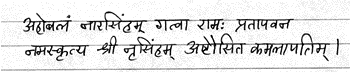 अहोबलं नारसिंहम् गत्वा रामः प्रतापवन
नमस्कृत्य श्री नृसिंहम् अष्टौसित कमलापतिम् ।